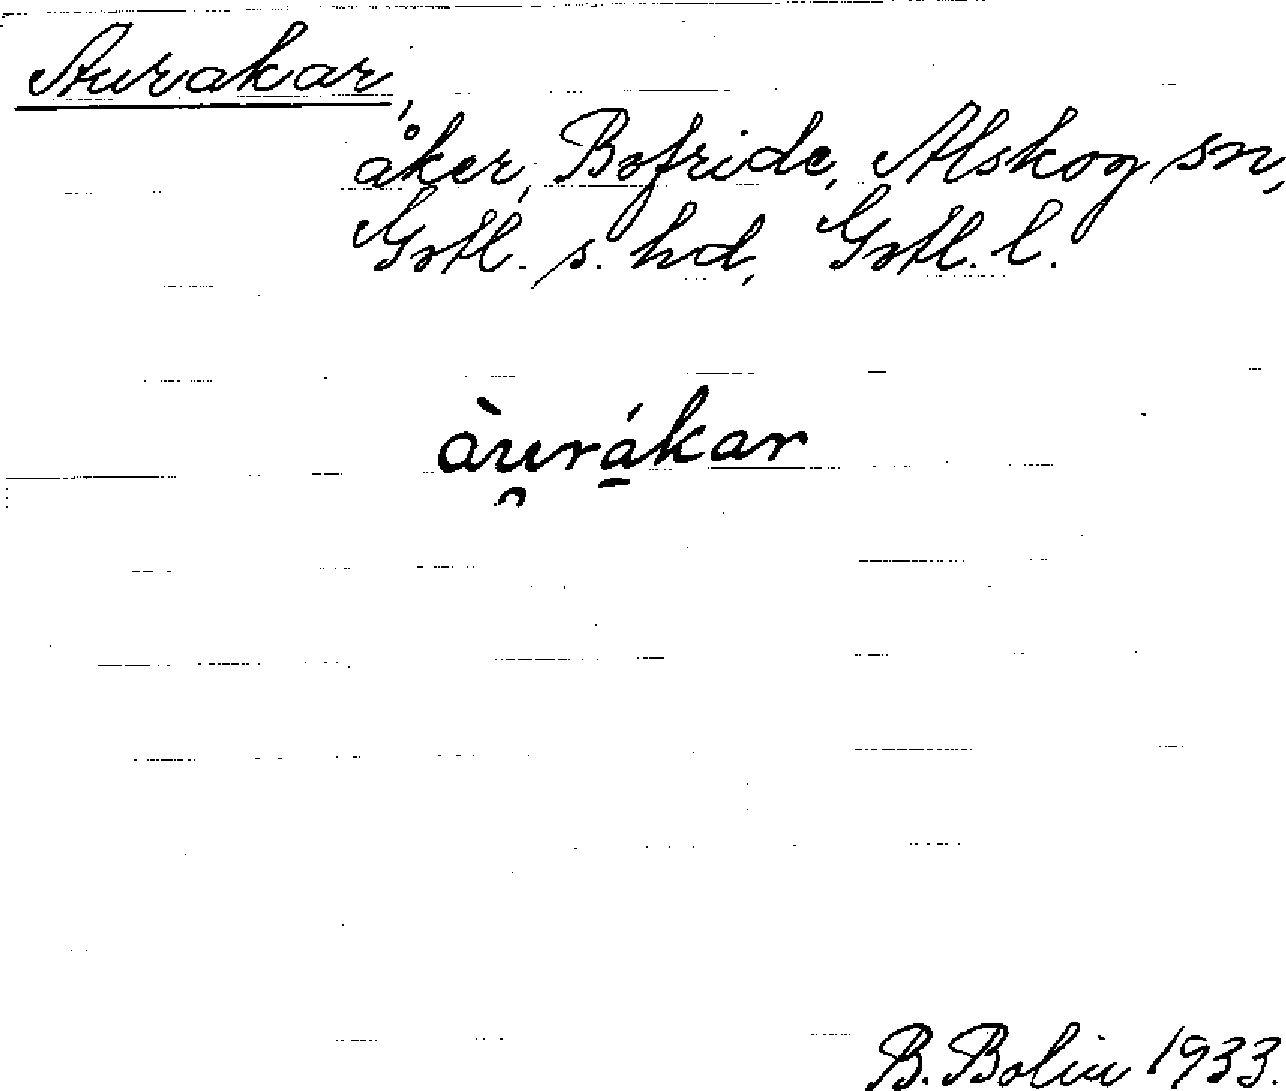 Aurakar,
åker, Bofride, Alskog sn,
Gotl. s. hd, Gotl. l.
àu̯rá̱kar
B. Bolin 1933.